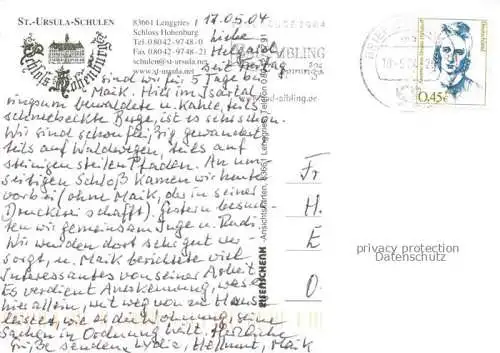 ST.-URSULA-SCHULEN
83661 Lenggries
Schloss Hohenburg
Tel. 08042-9748-0
Fax 08042-9748-21
schulen@st-ursula.net
www.st-ursula.net
Schloss Hohenburg
17.05.04
Liebe
Helga!
Seit Freitag
sind wir für 5 Tage bei
Maik. Hier im Isartal
ringsum bewaldete u. kahle, teils
schneebedeckte Berge, ist es sehr schön.
Wir sind schon fleißig gewandert
teils auf Waldwegen, teils auf
steinigen steilen Pfaden. An um-
seitigen Schloß kamen wir heute
vorbei (ohne Maik, der in seiner
Druckerei schafft). Gestern besuch-
ten wir gemeinsam Inge u. Rudi.
Wir wurden dort sehr gut ver-
sorgt, u. Maik berichtete viel
Interessantes von seiner Arbeit.
Es verdient Anerkennung, was er
hier allein, weit weg von zu Hause
leistet, wie er die Wohnung, seine
Sachen in Ordnung hält. Herzliche
Grüße senden Lydia, Hellmut, Maik
AIBLING
ad-aibling.de
Ansichtskarten, 83661 Lenggries, Telefon
BRIEF
Deutschland
0,45€
Fr
H.
E
O.
privacy protection
Datenschutz